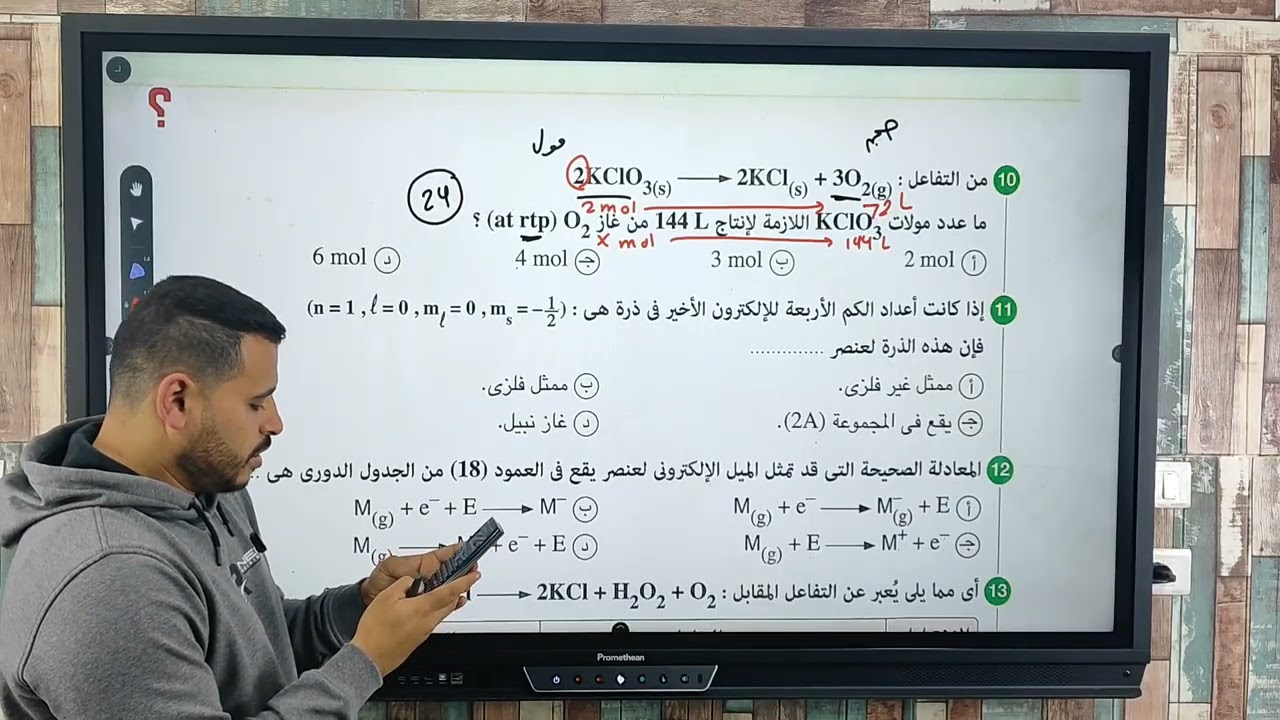 ؟
مول
حجم
24
10 من التفاعل : 2KClO3(s) ⟶ 2KCl(s) + 3O2(g)
2 mol ⟶ 72 L
ما عدد مولات KClO3 اللازمة لإنتاج 144 L من غاز O2 (at rtp) ؟
x mol ⟶ 144 L
أ 2 mol ب 3 mol جـ 4 mol د 6 mol
11 إذا كانت أعداد الكم الأربعة للإلكترون الأخير فى ذرة هى : (n = 1 , ℓ = 0 , mℓ = 0 , ms = −1/2)
فإن هذه الذرة لعنصر ..............
أ ممثل غير فلزى. ب ممثل فلزى.
جـ يقع فى المجموعة (2A). د غاز نبيل.
12 المعادلة الصحيحة التى قد تمثل الميل الإلكترونى لعنصر يقع فى العمود (18) من الجدول الدورى هى ..
أ M(g) + e− ⟶ M−(g) + E ب M(g) + e− + E ⟶ M−
جـ M(g) + E ⟶ M+ + e− د M(g) ⟶ + e− + E
13 أى مما يلى يُعبر عن التفاعل المقابل : ⟶ 2KCl + H2O2 + O2
Promethean